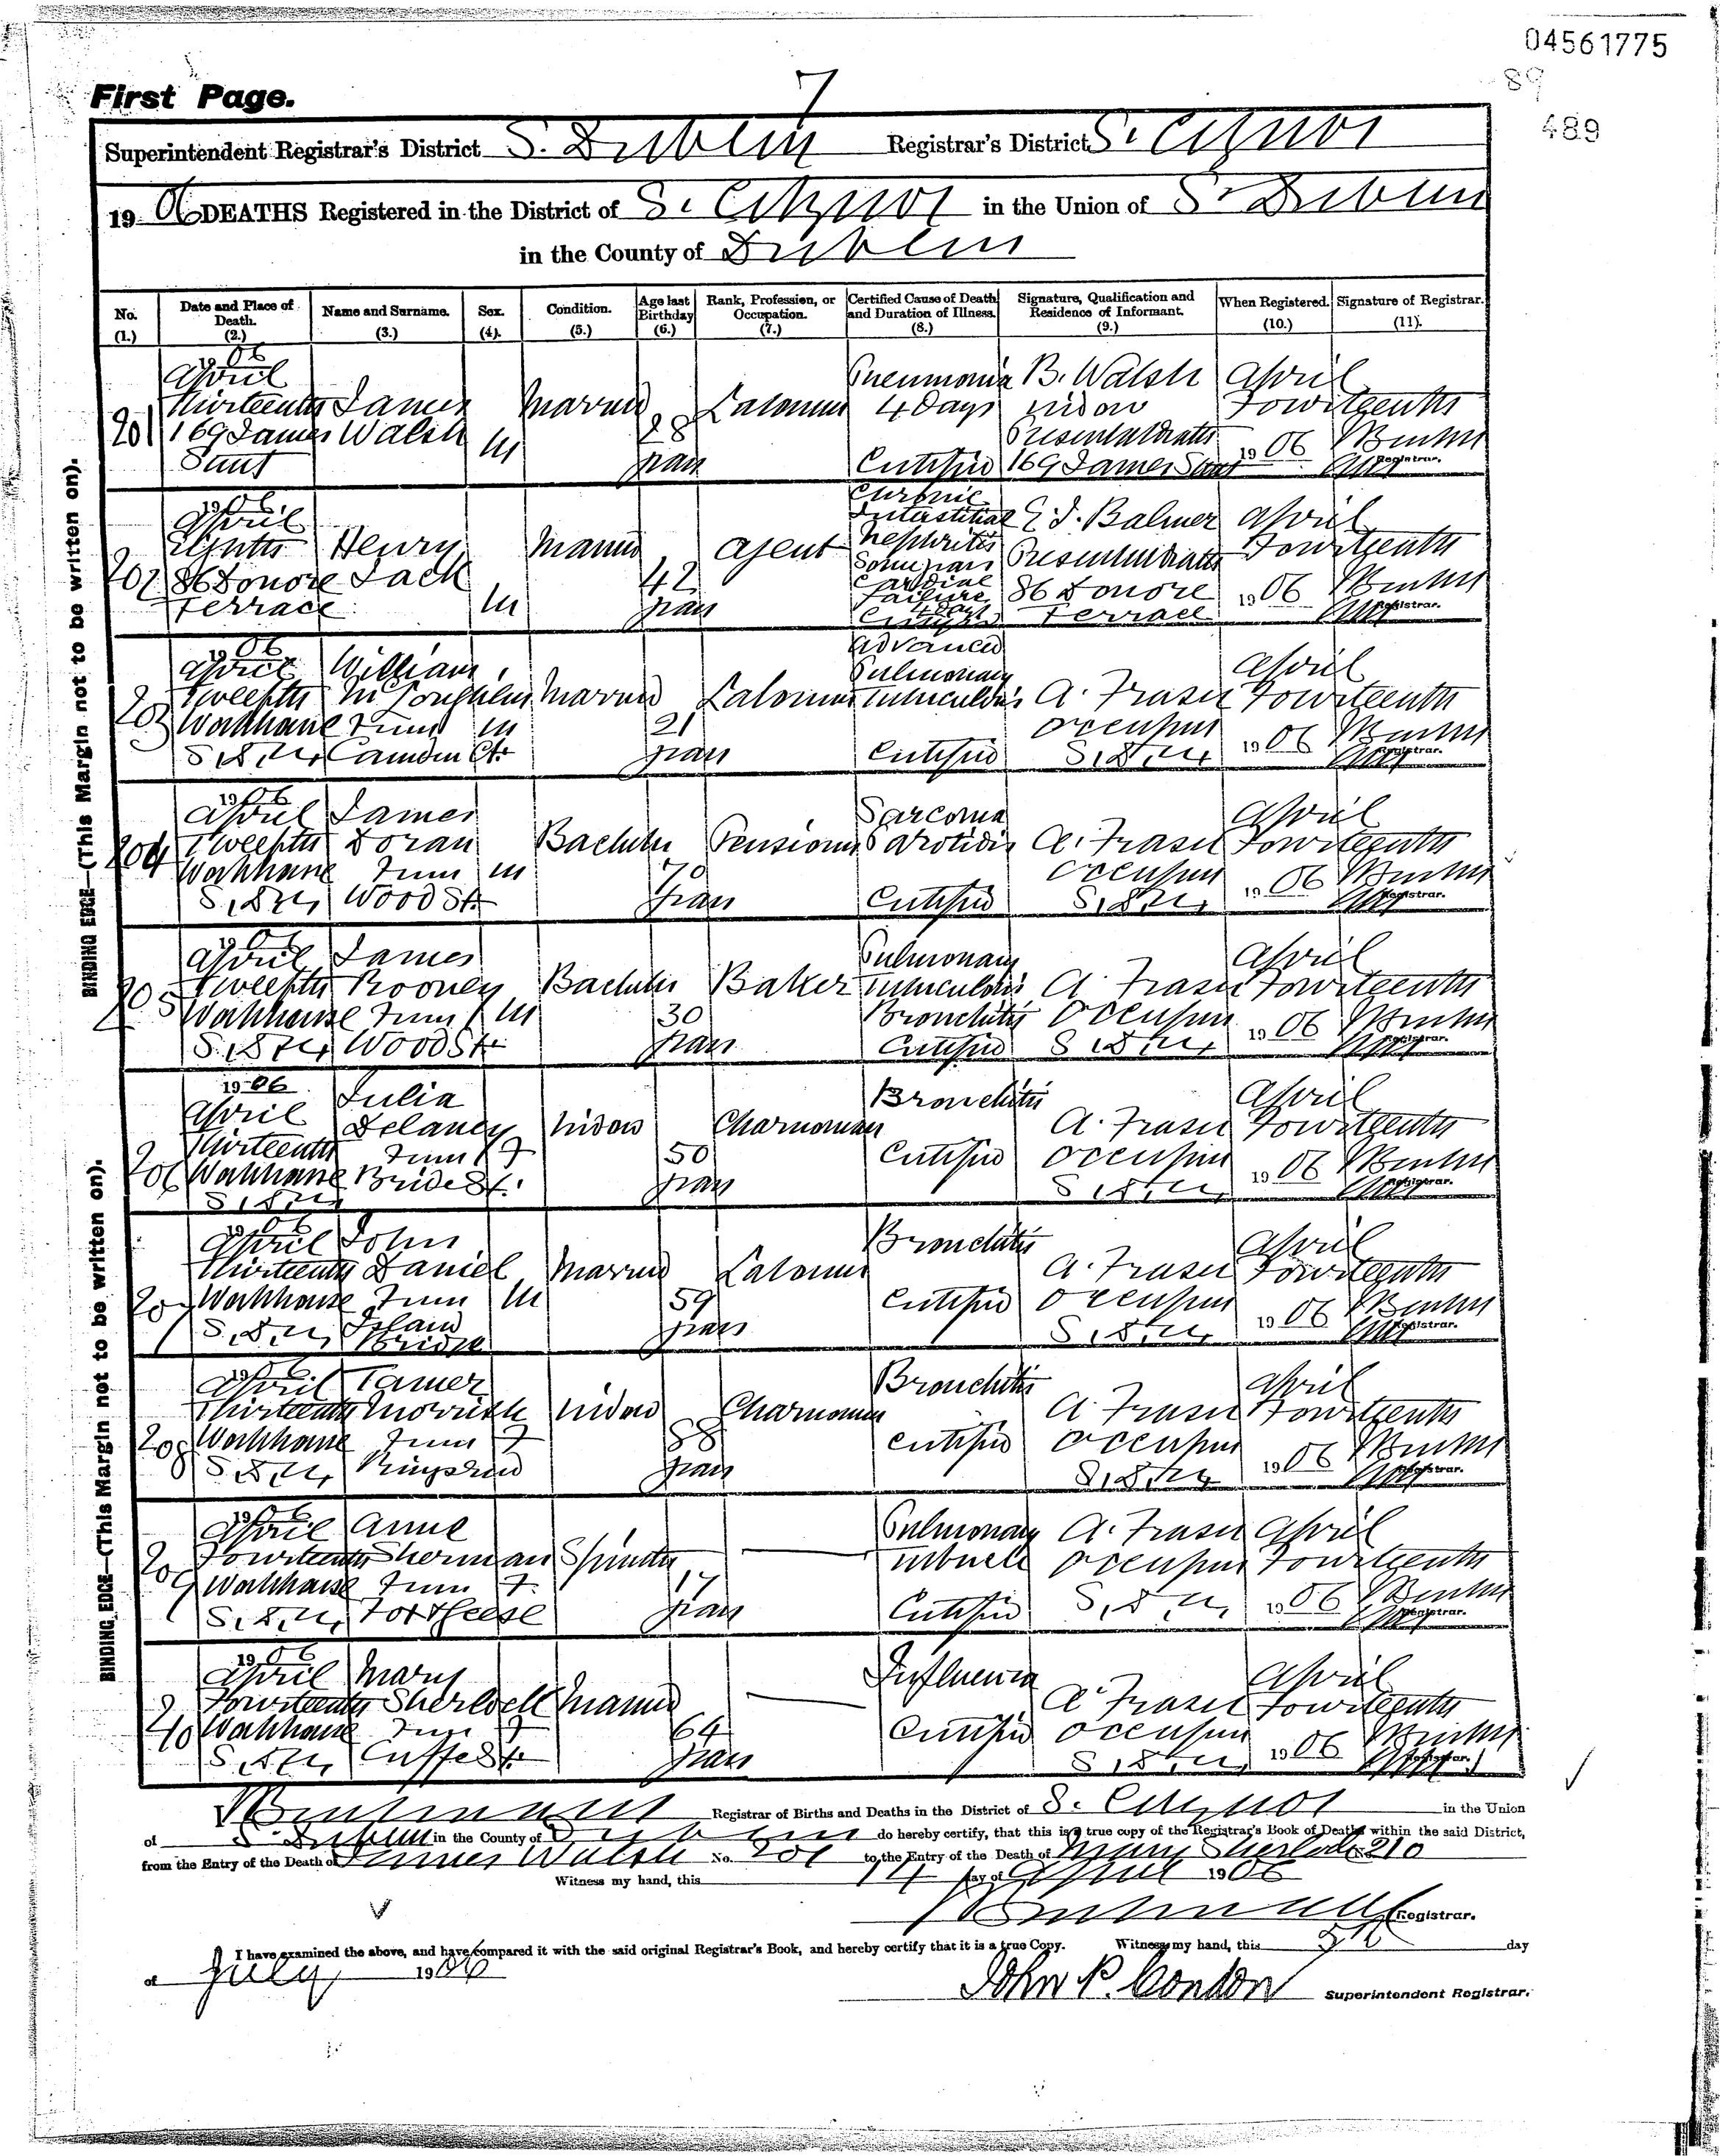 04561775
89
489
First Page.
7
Superintendent Registrar's District S. Dublin Registrar's District S. City No 1
19 06 DEATHS Registered in the District of S. City No 1 in the Union of S. Dublin
in the County of Dublin
No. Date and Place of Death. Name and Surname. Sex. Condition. Age last Birthday Rank, Profession, or Occupation. Certified Cause of Death and Duration of Illness. Signature, Qualification and Residence of Informant. When Registered. Signature of Registrar.
(1.) (2.) (3.) (4). (5.) (6.) (7.) (8.) (9.) (10.) (11).
BINDING EDGE—(This Margin not to be written on).
1906
April Pneumonia B. Walsh April
Thirteenth James Married Labourer 4 Days Widow Fourteenth
201 169 James Walsh M 28 Present at death 1906
Street Years Certified 169 James Street Registrar.
1906 Chronic
April Interstitial E J. Balmer April
Henry Married Agent Nephritis Present at death Fourteenth
202 86 Donore Jack M 42 Cardiac 86 Donore 1906
Terrace Years Failure Terrace Registrar.
4 Days Certified
1906 Advanced
April William Pulmonary April
Twelfth Married Labourer Tuberculosis A. Fraser Fourteenth
203 Workhouse From M 21 Occupier 1906
S.D.U. Camden St. Years Certified S.D.U. Registrar.
1906
April James Sarcoma April
Twelfth Doran Bachelor Pensioner Parotidis A. Fraser Fourteenth
204 Workhouse From M 70 Occupier 1906
S.D.U. Wood St Years Certified S.D.U. Registrar.
1906
April James Pulmonary April
Twelfth Rooney Bachelor Baker Tuberculosis A. Fraser Fourteenth
205 Workhouse From M 30 Bronchitis Occupier 1906
S.D.U. Wood St Years Certified S.D.U. Registrar.
1906 Julia Bronchitis April
April Delaney Widow Charwoman A. Fraser Fourteenth
Thirteenth From F 50 Certified Occupier 1906
206 Workhouse Bride St. Years S.D.U. Registrar.
S.D.U.
1906
April John Bronchitis April
Thirteenth Daniel Married Labourer A. Fraser Fourteenth
207 Workhouse From M 59 Certified Occupier 1906
S.D.U. Island Bridge Years S.D.U. Registrar.
1906
April Bronchitis April
Thirteenth Widow Charwoman A. Fraser Fourteenth
208 Workhouse From F 58 Certified Occupier 1906
S.D.U. Ringsend Years S.D.U. Registrar.
1906
April Anne Pulmonary A. Fraser April
Fourteenth Sherman Spinster — Tubercle Occupier Fourteenth
209 Workhouse From F. 17 1906
S.D.U. Years Certified S.D.U. Registrar.
1906
April Mary Influenza April
Fourteenth Married — A. Fraser Fourteenth
210 Workhouse From F 64 Certified Occupier 1906
S.D.U. Cuffe St. Years S.D.U. Registrar.
BINDING EDGE—(This Margin not to be written on).
Registrar of Births and Deaths in the District of S. City No 1 in the Union
of S. Dublin in the County of Dublin do hereby certify, that this is a true copy of the Registrar's Book of Deaths within the said District,
from the Entry of the Death of James Walsh No. 201 to the Entry of the Death of Mary 210
Witness my hand, this 14 day of April 1906
Registrar.
I have examined the above, and have compared it with the said original Registrar's Book, and hereby certify that it is a true Copy. Witness my hand, this day
of July 1906
John P. Condon Superintendent Registrar.